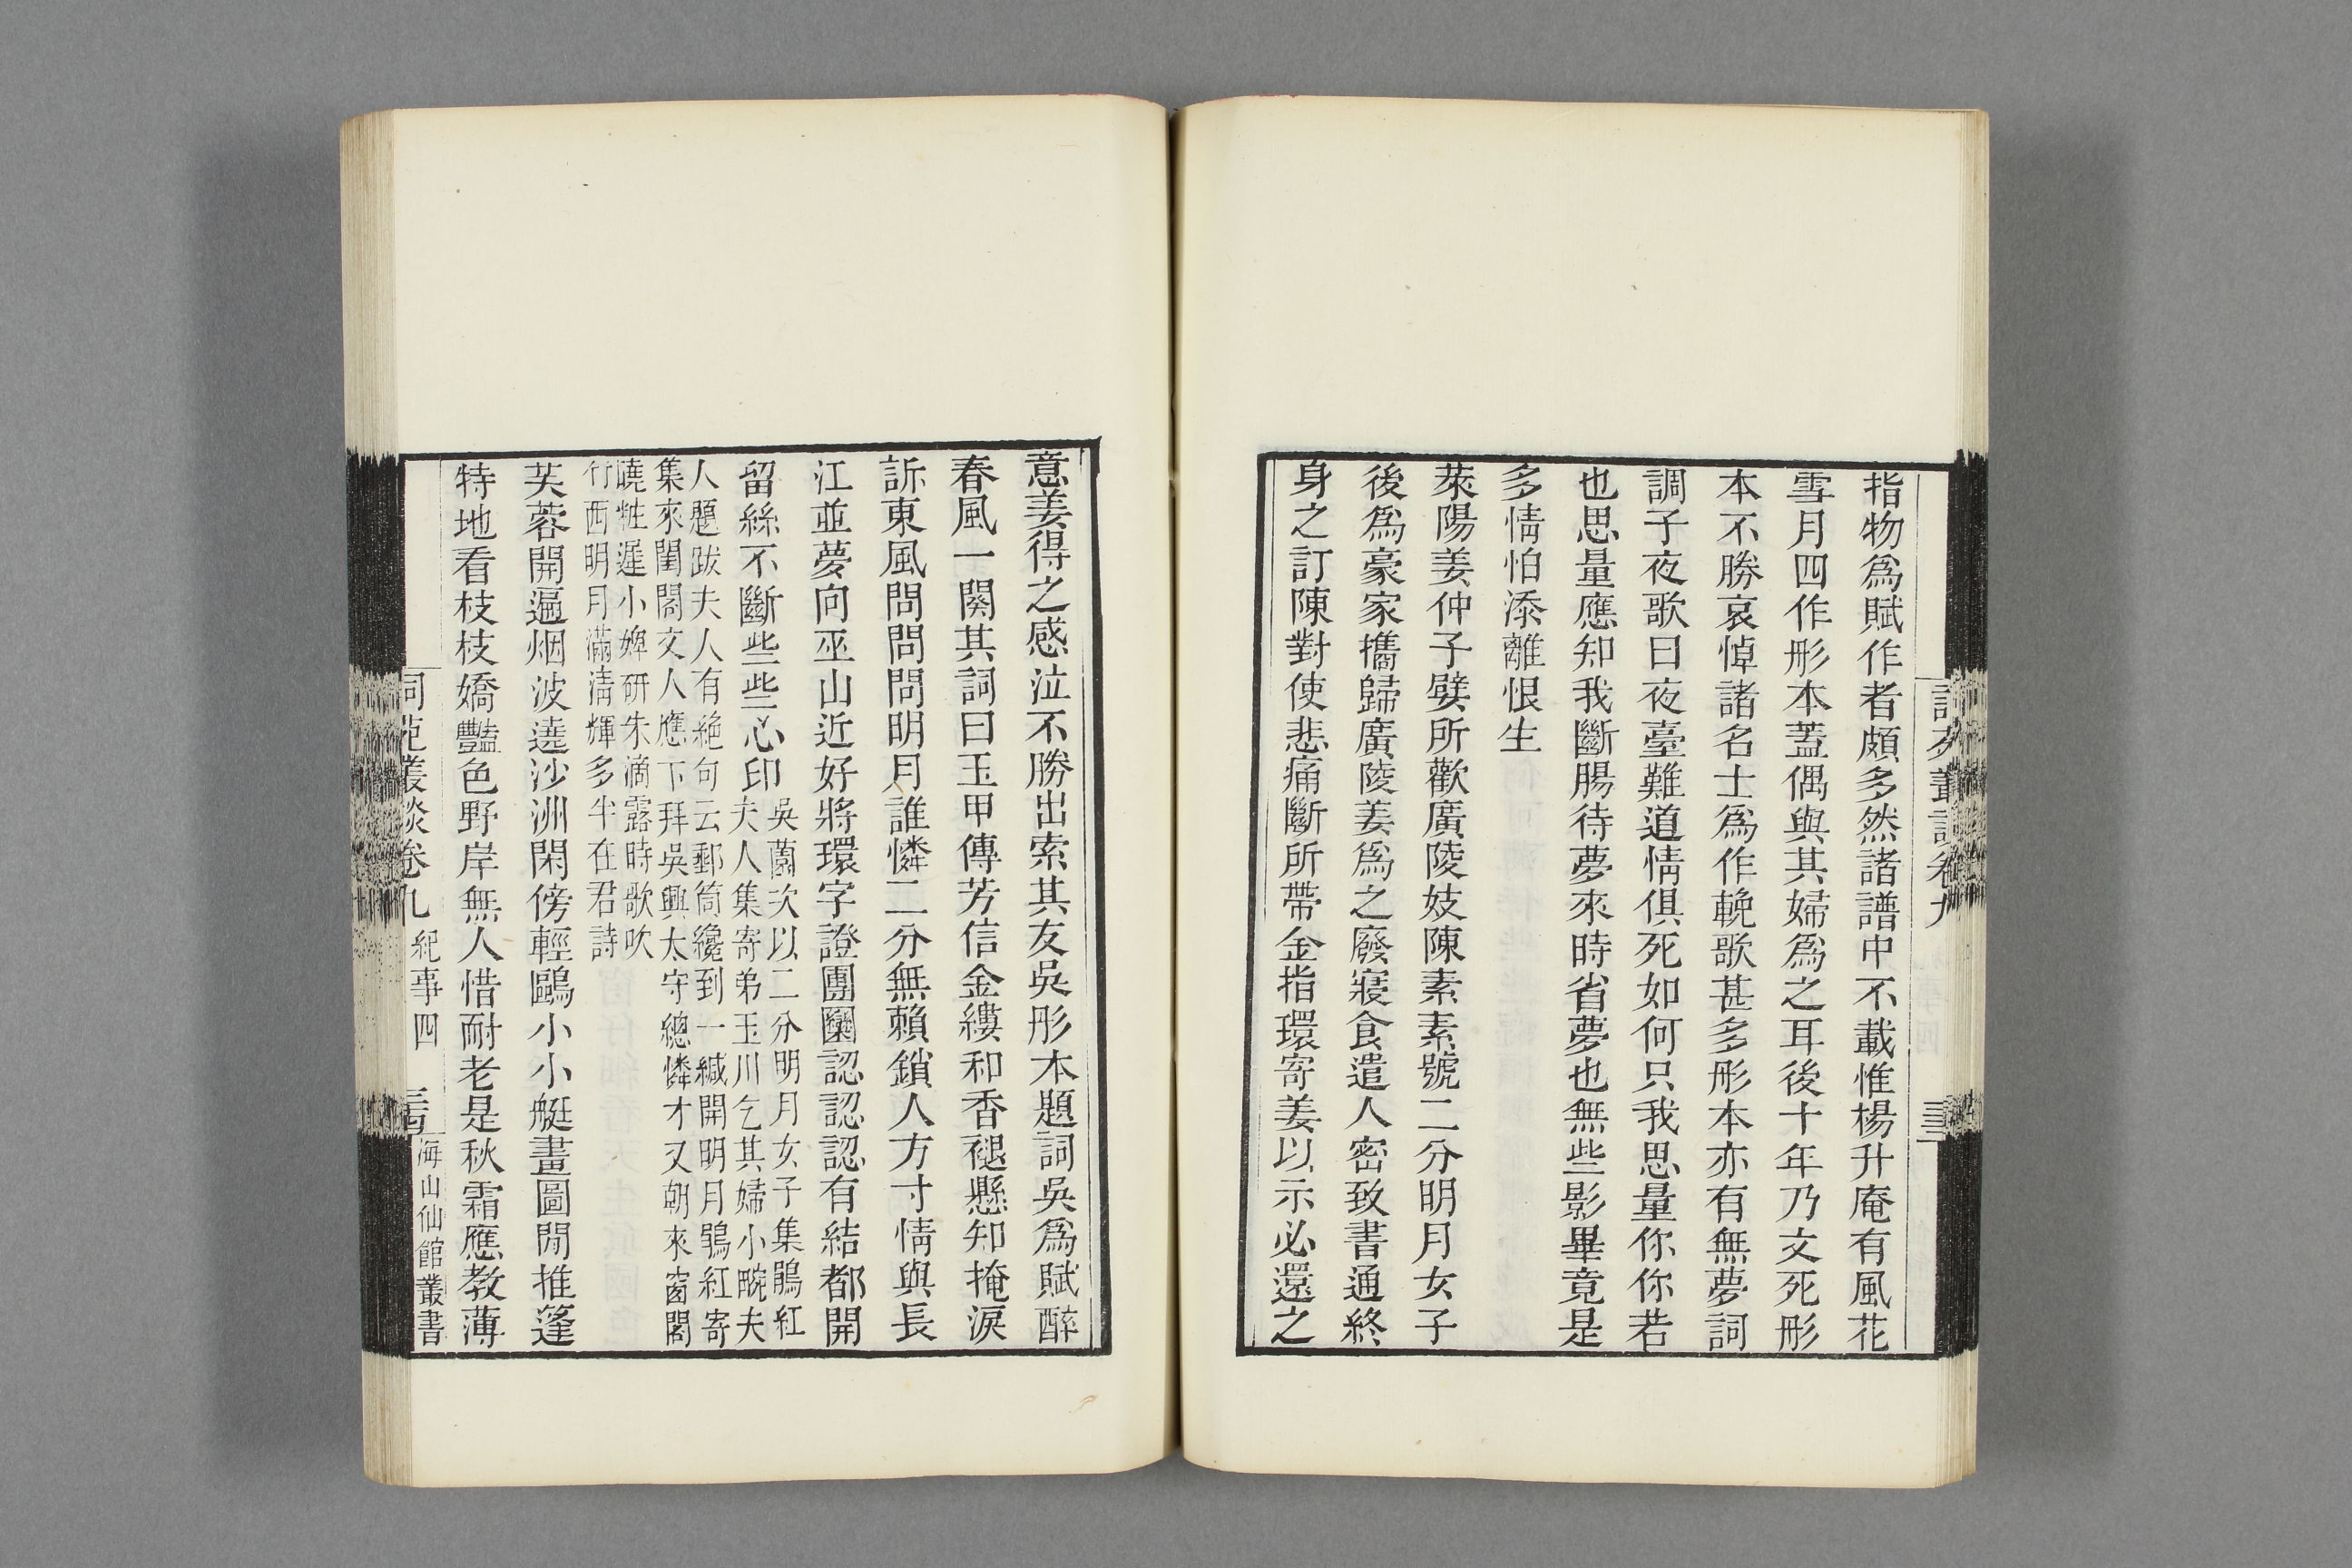 指物爲賦作者頗多然諸譜中不載惟楊升庵有風花
雪月四作彤本蓋偶與其婦爲之耳後十年乃文死彤
本不勝哀悼諸名士爲作輓歌甚多彤本亦有無夢詞
調子夜歌曰夜臺難道情俱死如何只我思量你你若
也思量應知我斷腸待夢來時省夢也無些影畢竟是
多情怕添離恨生
萊陽姜仲子嬖所歡廣陵妓陳素素號二分明月女子
後爲豪家攜歸廣陵姜爲之廢寢食遣人密致書通終
身之訂陳對使悲痛斷所帶金指環寄姜以示必還之
意姜得之感泣不勝出索其友吳彤本題詞吳爲賦醉
春風一闋其詞曰玉甲傳芳信金縷和香褪懸知掩淚
訴東風問問問明月誰憐二分無賴鎖人方寸情與長
江並夢向巫山近好將環字證團圞認認認有結都開
留絲不斷些些心印
吳薗次以二分明月女子集鵑紅
夫人集寄弟玉川乞其婦小畹夫
人題跋夫人有絶句云郵筒纔到一緘開明月鵑紅寄
集來閨閣文人應下拜吳興太守總憐才又朝來窗閣
曉粧遲小婢研朱滴露時歌吹
竹西明月滿清輝多半在君詩
芙蓉開遍烟波遶沙洲閑傍輕鷗小小艇畫圖開推篷
特地看枝枝嬌豔色野岸無人惜耐老是秋霜應教薄
詞苑叢談卷九 紀事四 海山仙館叢書